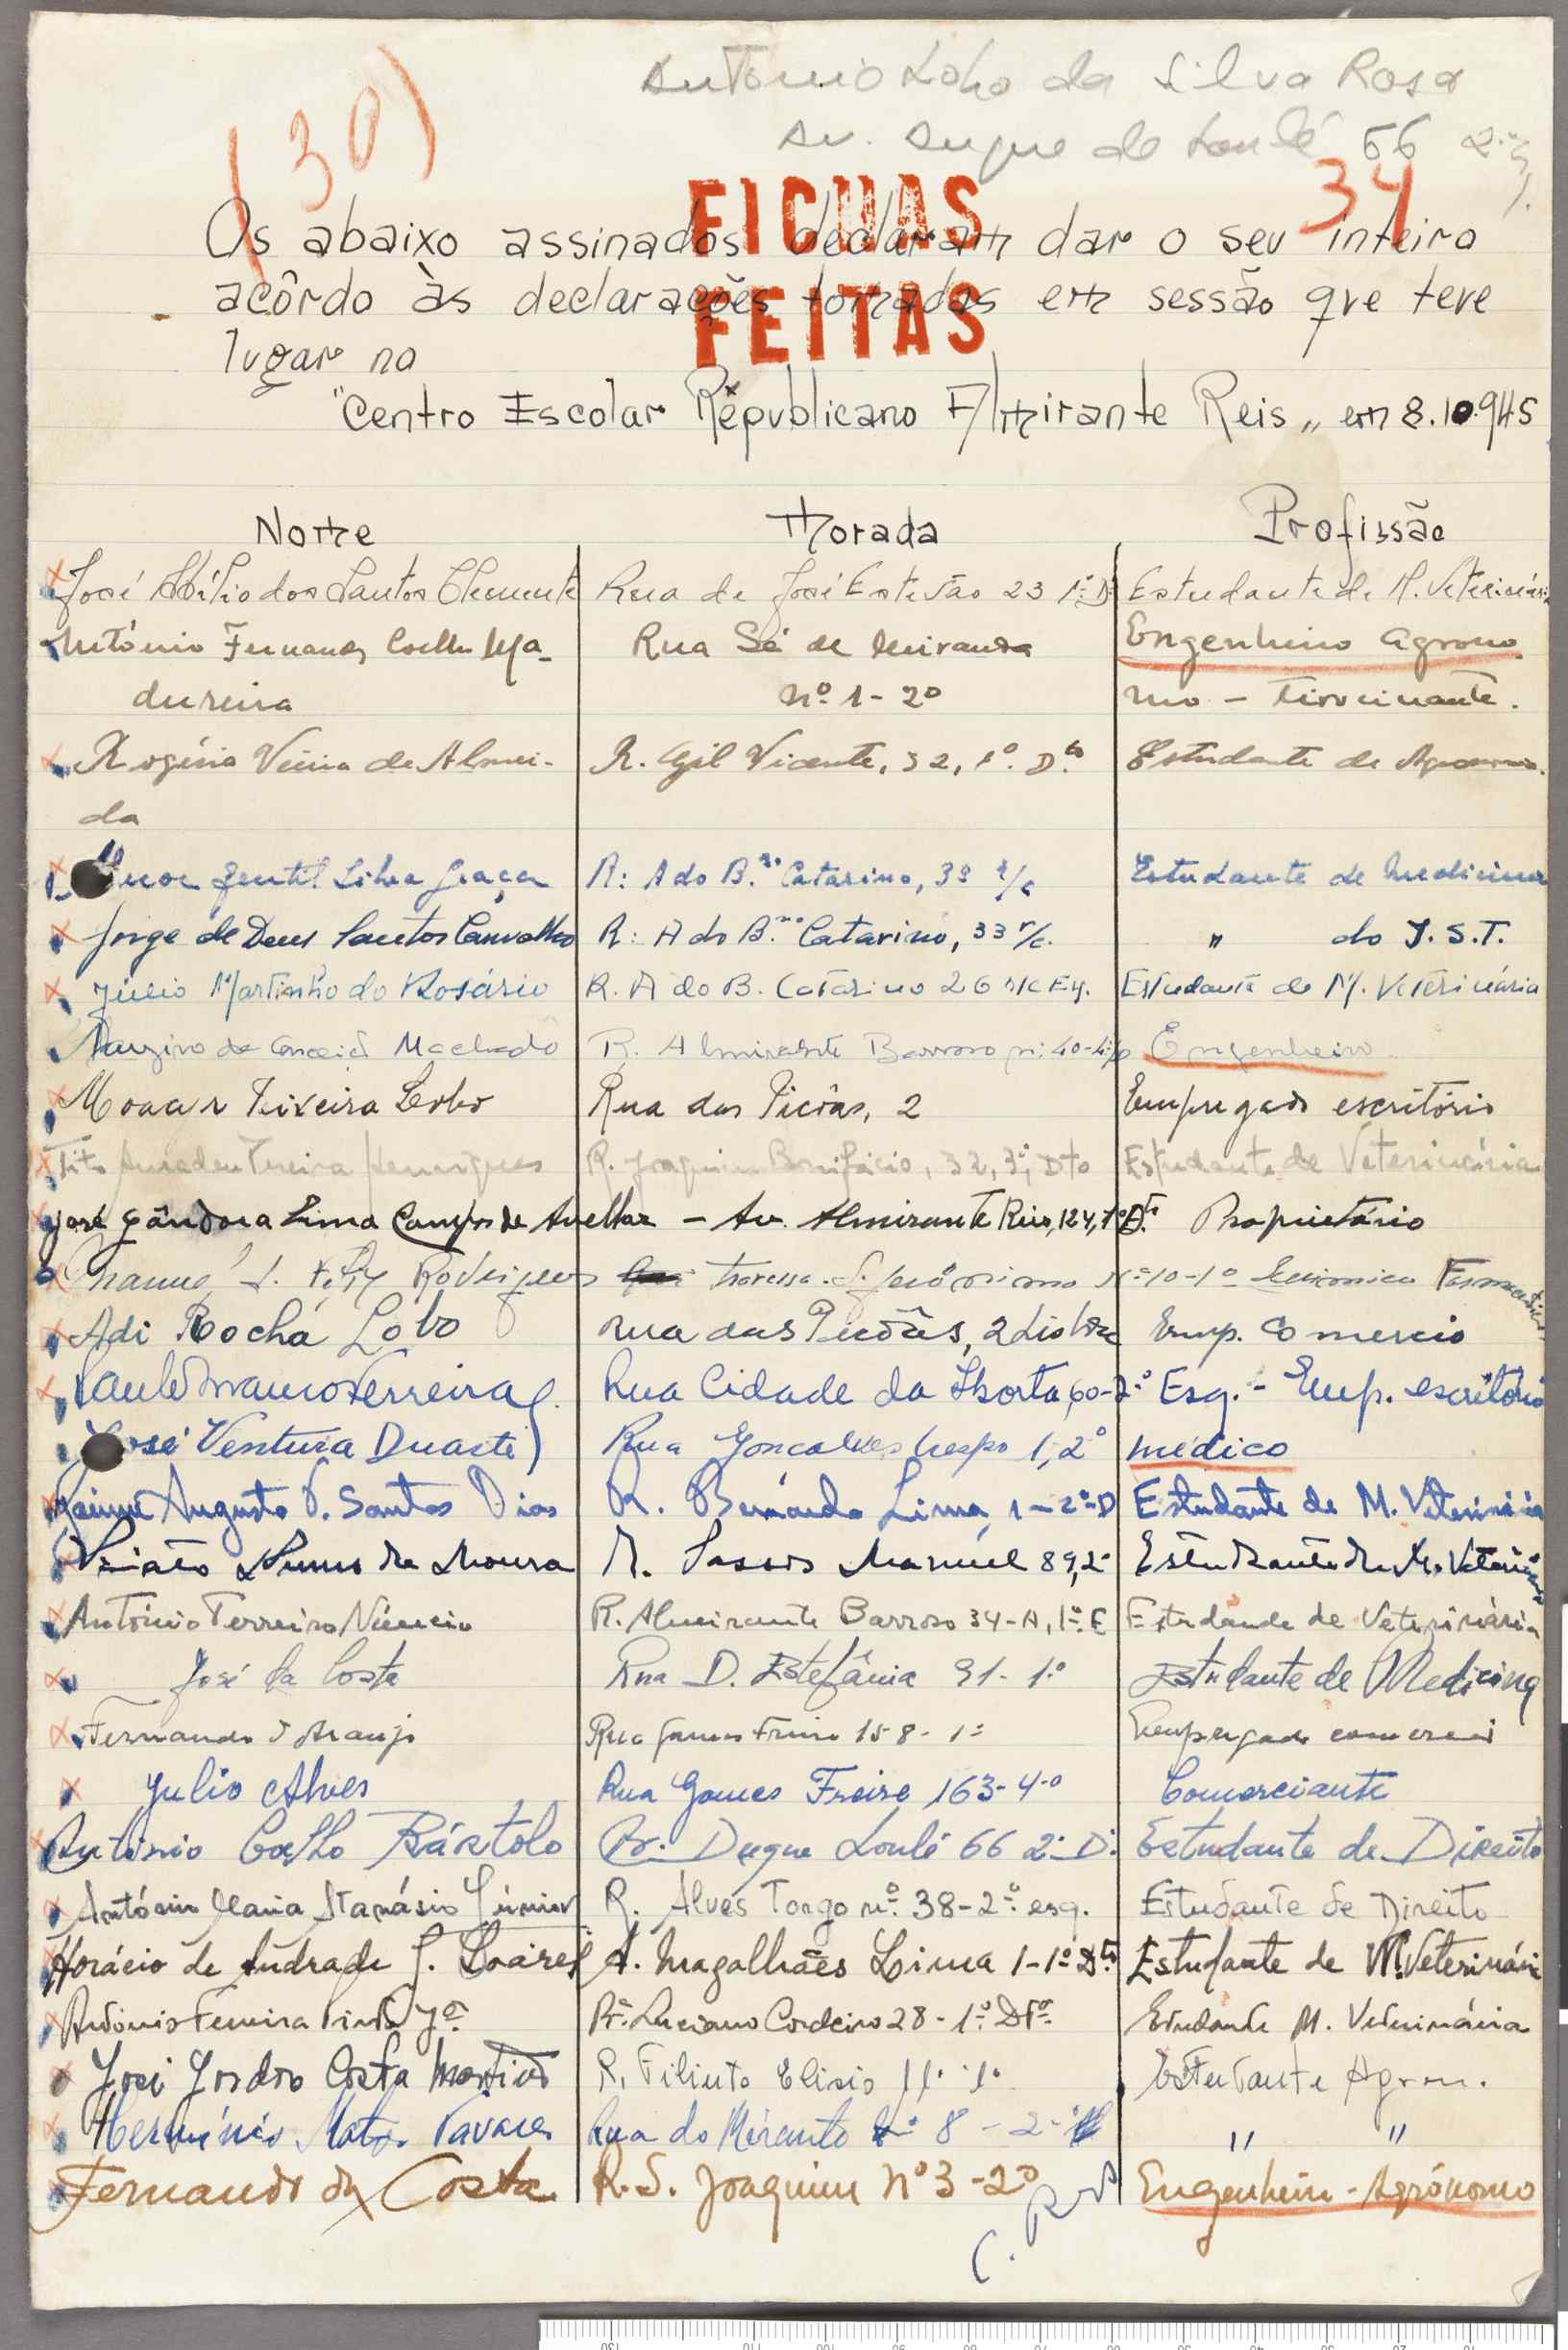 António Lobo da Silva Rosa
Av. Duque de Loulé 66 2.º
(30)
34
FICHAS
FEITAS
Os abaixo assinados declaram dar o seu inteiro
acôrdo às declarações tomadas em sessão que teve
lugar no
"Centro Escolar Républicano Almirante Reis„ em 8.10.945
Nome Morada Profissão
José Abílio dos Santos Clemente Rua de José Estevão 23 1º D Estudante de M. Veterinária
António Fernandes Coelho Ma- Rua Sá de Miranda Engenheiro Agrono
dureira nº 1-2º mo - tirocinante.
Rogério Vieira de Almei- R. Gil Vicente, 32, 1º. D.to Estudante de Agronomia.
da
Gentil Silva Graça R: A do B.mo Catarino, 33 r/c Estudante de Medicina
Jorge de Deus Santos Carvalho R: A do B.mo Catarino, 33 r/c. " do I.S.T.
Júlio Martinho do Rosário R. A do B. Catarino 26 r/c Eq. Estudante de M. Veterinária
da Conceição Machado R. Almirante Barroso nº 40-4º Engenheiro
Moacir Teixeira Lobo Rua das Picôas, 2 Empregado escritório
Tito Amadeu Pereira Henriques R. Joaquim Bonifácio, 32, 3º, Dto Estudante de Veterinária
José Gândara Lima Campos de Avellar - Av. Almirante Reis, 124, 7º D.to Proprietário
Manuel J. Rodrigues Travessa S. Jerónimo Nº 10-1º Quimico Farmaceutico
Adi Rocha Lobo rua das Picôas, 2 Lisboa Emp. Comercio
Paulo Mauro Ferreira Rua Cidade da Horta 60-2º Esq. - Emp. escritório
José Ventura Duarte Rua Goncalves Crespo 1, 2º médico
Jaime Augusto P. Santos Dias R. Bernardo Lima, 1-2º-D Estudante de M. Veterinária
Viriato Nunes de Moura R. Passos Manuel 89, 2º Estudante de M. Veterinária
António Ferreira Núncio R. Almirante Barroso 34-A, 1º E Estudande de Veterinária
José da Costa Rua D. Estefânia 91-1º Estudante de Medicina
Fernando d'Araujo Rua Gomes Freire 158-1º Empregado comercial
Julio Alves Rua Gomes Freire 163-4-º Comerciante
António Coelho Bártolo Av. Duque Loulé 66 2º D. Estudante de Direito
António Maria Atanásio Júnior R. Alves Torgo nº 38-2º esq. Estudante de Direito
Horácio de Andrade G. Soares A. Magalhães Lima 1-1º D.to Estudante de M. Veterinária
António Ferreira Pinto Jor. R. Luciano Cordeiro 28-1º Dto. Estudante M. Veterinária
José Costa Martins R. Filinto Elisio 11-1º Estudante Agron.
Hermínio Matos Tavares Rua do Mirante nº 8-2º " "
Fernando da Costa R. S. Joaquim Nº 3-2º Engenheiro-Agrónomo